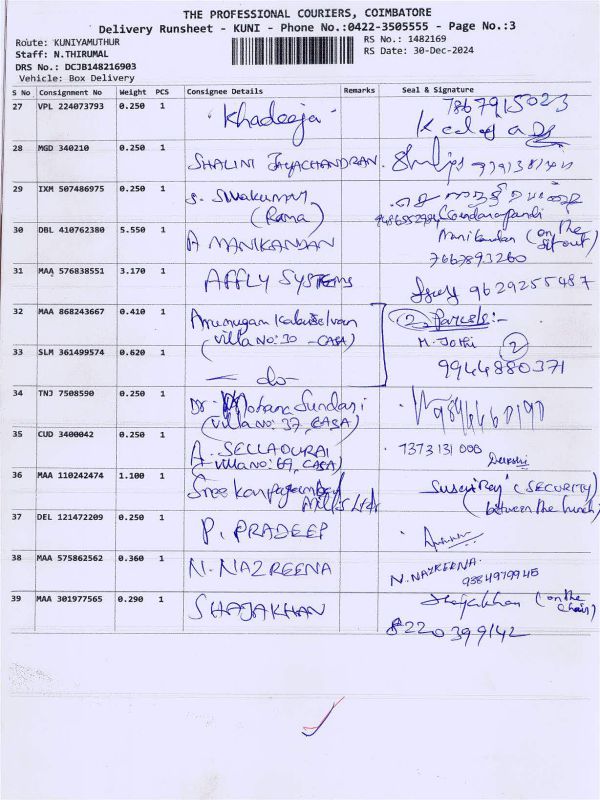 THE PROFESSIONAL COURIERS, COIMBATORE
Delivery Runsheet - KUNI - Phone No.:0422-3505555 - Page No.:3
Route: KUNIYAMUTHUR
RS No.: 1482169
Staff: N.THIRUMAL
RS Date: 30-Dec-2024
DRS No.: DCJB148216903
Vehicle: Box Delivery
S No Consignment No Weight PCS Consignee Details Remarks Seal & Signature
27 VPL 224073793 0.250 1 Khadeeja 7867915023
28 MGD 340210 0.250 1 SHALINI JAYACHANDRAN
29 IXM 507486975 0.250 1 S. Sivakumar
(Rama)
30 DBL 410762380 5.550 1 A MANIKANDAN Manikandan (on the
Sit out)
7667893260
31 MAA 576838551 3.170 1 AFFLY SYSTEMS 9629255487
32 MAA 868243667 0.410 1 Arumugam Kalaiselvan (2) Parcels:-
(Villa No: 30 - CASA) M. Jothi (2)
33 SLM 361499574 0.620 1 9944880371
— do —
34 TNJ 7508590 0.250 1 Dr. Mohana Sundari
(Villa no: 37, CASA)
35 CUD 3400042 0.250 1 A. SELLADURAI 7373131000
(Villa no: 69, CASA)
36 MAA 110242474 1.100 1 Sree (SECURITY)
Mills Ltd (between the lunch)
37 DEL 121472209 0.250 1 P. PRADEEP
38 MAA 575862562 0.360 1 N. NAZREENA N. NAZREENA
9384979945
39 MAA 301977565 0.290 1 SHAJAKHAN Shajakhan (on the
Chair)
8220399142